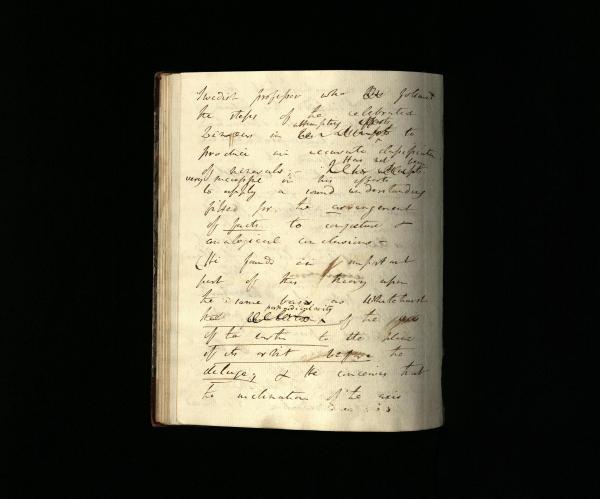 Swedish professor who has followed
the steps of the celebrated
attempting efforts
Linnaeus in his attempts to
produce an accurate classification
of minerals,
Has not been
very successful in his efforts
to apply a sound understanding
fitted for the arrangement
of facts to conjecture &
analogical conclusions -
(He founds an important
part of his theory upon
the same basis as Whitehurst
perpendicularity
the of the axis
of the earth to the plane
of its orbit before the
deluge; & He conceives that
the inclination of the axis